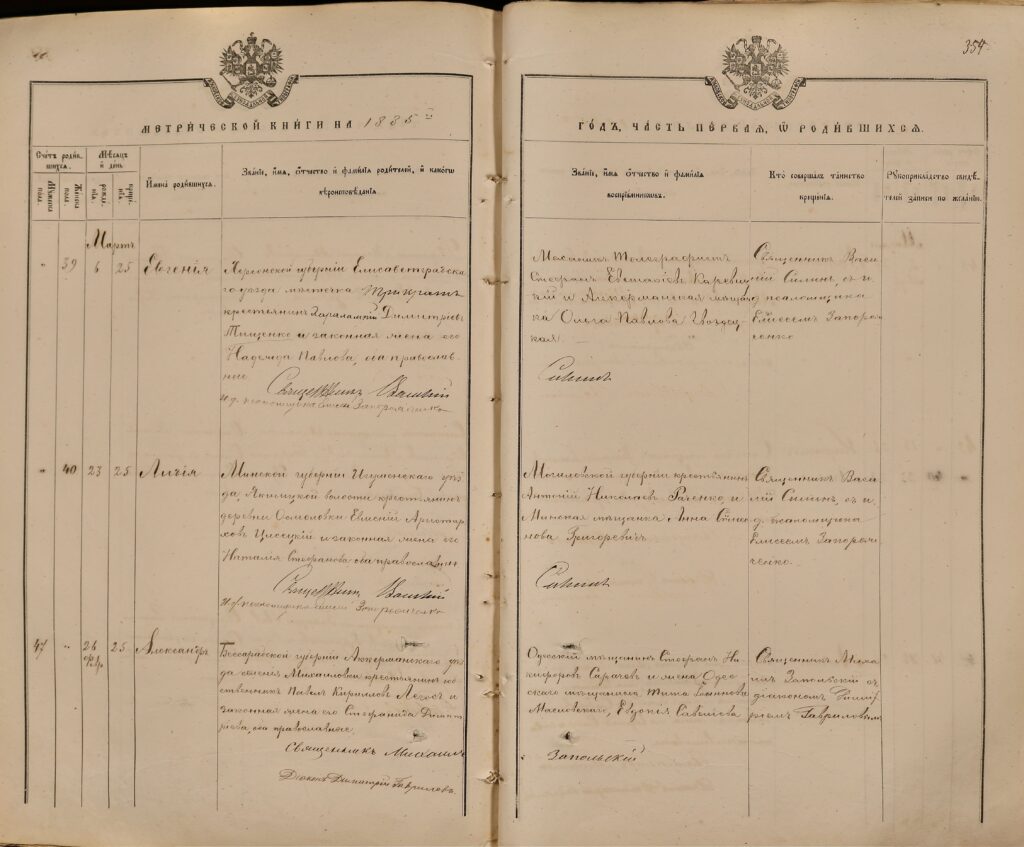 354
МЕТРИЧЕСКОЙ КНИГИ НА 1885
ГОДЪ, ЧАСТЬ ПЕРВАЯ, Ѡ РОДИВШИХСЯ.
Счетъ родившихся.
Мужеска пола.
Женска пола.
Мѣсяцъ и день
рожденія.
крещенія.
Имена родившихся.
Званіе, имя, отчество и фамилія родителей, и какого вѣроисповѣданія.
Званіе, имя, отчество и фамилія воспріемниковъ.
Кто совершалъ таинство крещенія.
Рукоприкладство свидѣтелей записи по желанію.
Мартъ
" 39 6 25 Евгенія
Херсонской губерніи Елисаветградска
го уѣзда мѣстечка
крестьянинъ Харалампій Димитріевъ
Тищенко и законная жена его
Надежда Павлова, оба православ-
ные.
Священникъ Василій
И. д. псаломщика Елисей Запорожченко
Телеграфистъ
Стефанъ Евстафіевъ
и Аккерманская мѣщан
ка Ольга Павлова
Силинъ
Священникъ Васи
лій Силинъ, съ и.
д. псаломщика
Елисеемъ Запорож
ченко
" 40 23 25 Лидія
Минской губерніи Игуменскаго уѣз
да, волости крестьянинъ
деревни Осмоловки Евмений Аристар
ховъ и законная жена его
Наталія Стефанова оба православны
Священникъ Василій
И. д. псаломщика Елисей Запорожченко
Могилевской губерніи крестьянинъ
Антоній Николаевъ и
Минская мѣщанка Анна
нова Григоревичъ
Силинъ
Священникъ Васи
лій Силинъ, съ и.
д. псаломщика
Елисеемъ Запорож
ченко.
47 " 26 Февр. 25 Александръ
Бессарабской губерніи Аккерманскаго уѣз
да селенія Михайловки крестьянинъ соб
ственникъ Павелъ Кирилловъ и
законная жена его Стефанида Димит
ріева, оба православные.
Священникъ Михаилъ
Діаконъ Димитрій Гавриловъ.
Одесскій мѣщанинъ Стефанъ Ни
кифоровъ Сарачевъ и жена Одес
скаго мѣщанина
Масловскаго, Евдокія Савельева
Запольскій
Священникъ Миха
илъ Запольскій съ
діакономъ Димит
ріемъ Гавриловымъ